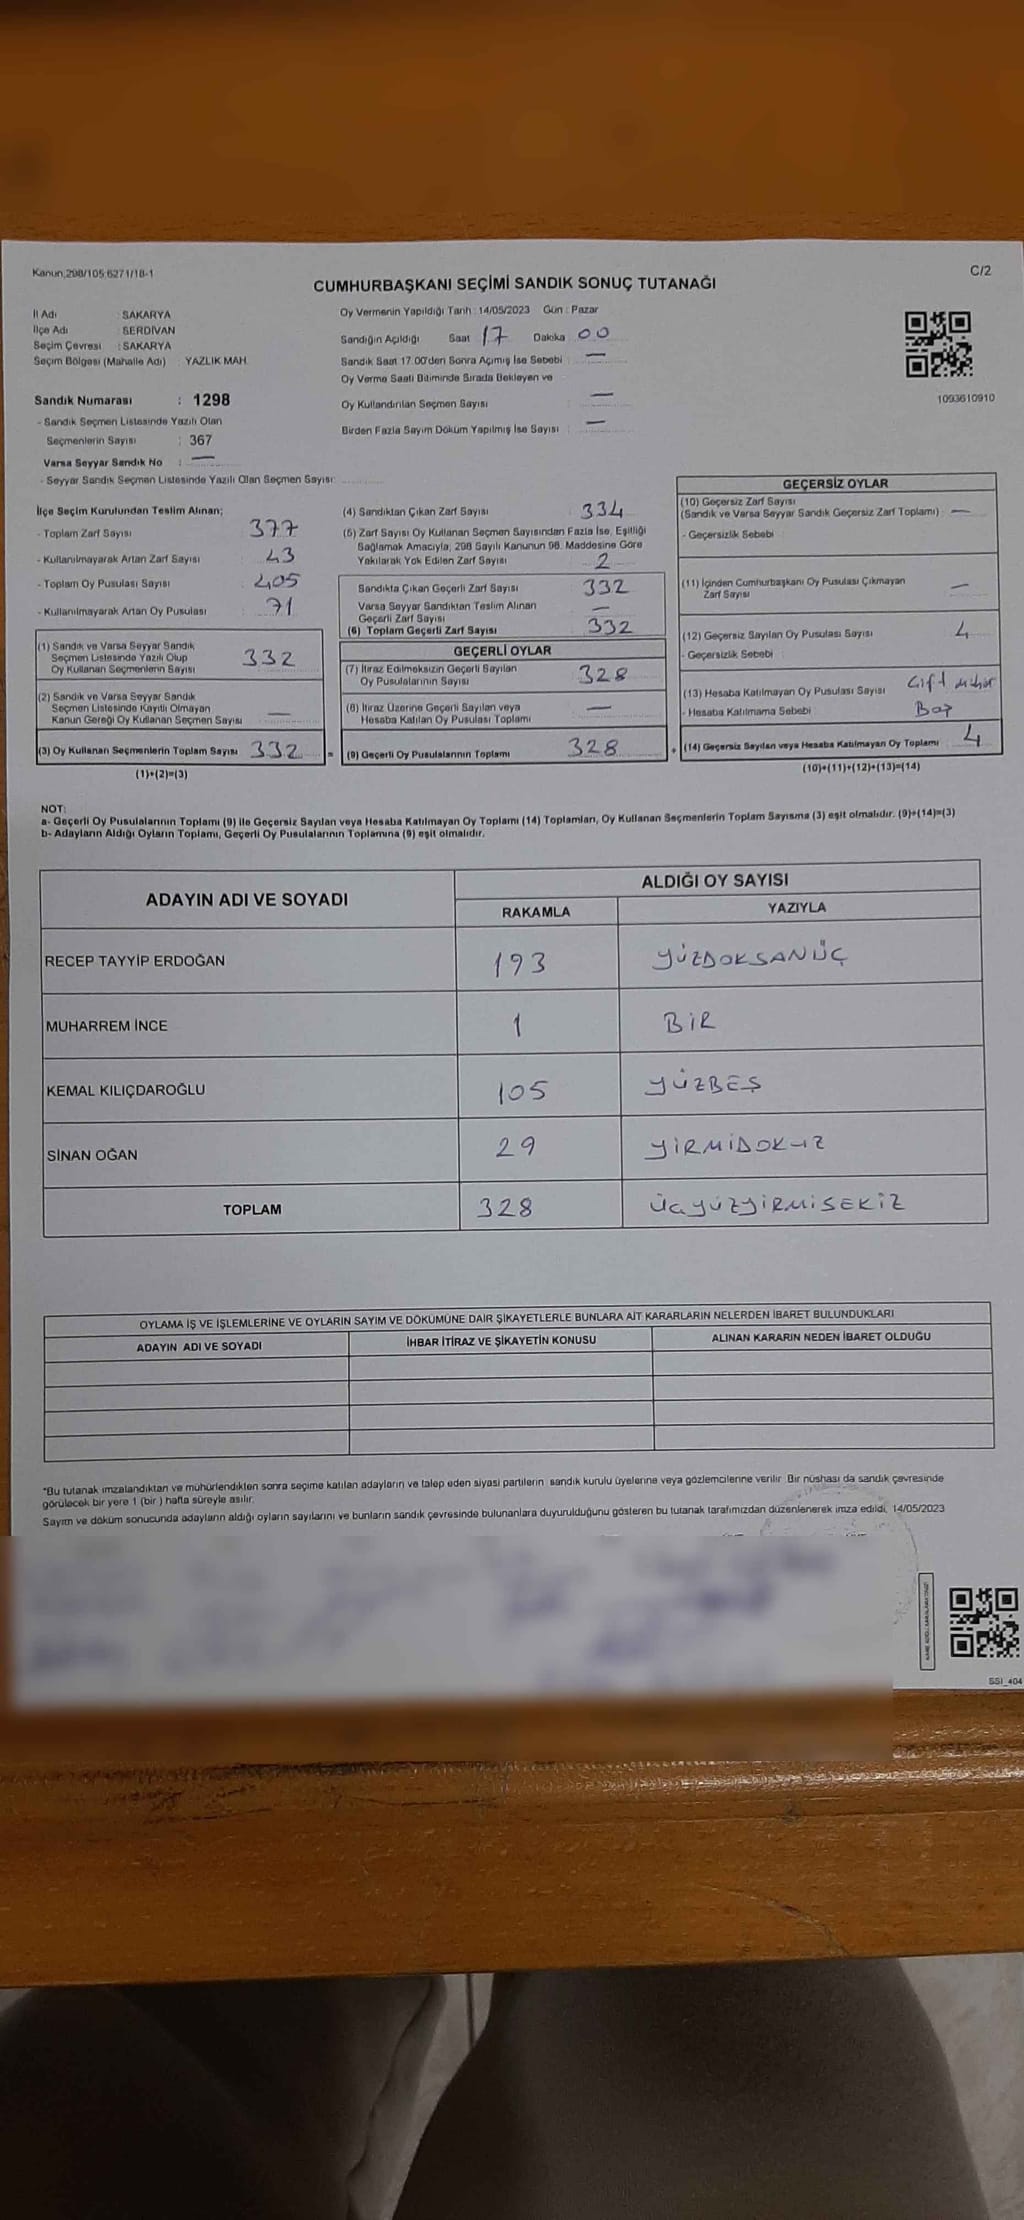 Kanun;298/105;6271/18-1
C/2
CUMHURBAŞKANI SEÇİMİ SANDIK SONUÇ TUTANAĞI
İl Adı : SAKARYA
İlçe Adı : SERDİVAN
Seçim Çevresi : SAKARYA
Seçim Bölgesi (Mahalle Adı) : YAZLIK MAH.
Sandık Numarası : 1298
- Sandık Seçmen Listesinde Yazılı Olan
Seçmenlerin Sayısı : 367
Varsa Seyyar Sandık No : —
- Seyyar Sandık Seçmen Listesinde Yazılı Olan Seçmen Sayısı:
Oy Vermenin Yapıldığı Tarih : 14/05/2023 Gün : Pazar
Sandığın Açıldığı Saat 17 Dakika 00
Sandık Saat 17.00'den Sonra Açılmış İse Sebebi : —
Oy Verme Saati Bitiminde Sırada Bekleyen ve
Oy Kullandırılan Seçmen Sayısı : —
Birden Fazla Sayım Döküm Yapılmış İse Sayısı : —
1093610910
İlçe Seçim Kurulundan Teslim Alınan;
- Toplam Zarf Sayısı 377
- Kullanılmayarak Artan Zarf Sayısı 43
- Toplam Oy Pusulası Sayısı 405
- Kullanılmayarak Artan Oy Pusulası 71
(1) Sandık ve Varsa Seyyar Sandık
Seçmen Listesinde Yazılı Olup
Oy Kullanan Seçmenlerin Sayısı 332
(2) Sandık ve Varsa Seyyar Sandık
Seçmen Listesinde Kayıtlı Olmayan
Kanun Gereği Oy Kullanan Seçmen Sayısı —
(3) Oy Kullanan Seçmenlerin Toplam Sayısı 332 =
(1)+(2)=(3)
(4) Sandıktan Çıkan Zarf Sayısı 334
(5) Zarf Sayısı Oy Kullanan Seçmen Sayısından Fazla İse, Eşitliği
Sağlamak Amacıyla, 298 Sayılı Kanunun 98. Maddesine Göre
Yakılarak Yok Edilen Zarf Sayısı 2
Sandıkta Çıkan Geçerli Zarf Sayısı 332
Varsa Seyyar Sandıktan Teslim Alınan
Geçerli Zarf Sayısı —
(6) Toplam Geçerli Zarf Sayısı 332
GEÇERLİ OYLAR
(7) İtiraz Edilmeksizin Geçerli Sayılan
Oy Pusulalarının Sayısı 328
(8) İtiraz Üzerine Geçerli Sayılan veya
Hesaba Katılan Oy Pusulası Toplamı —
(9) Geçerli Oy Pusulalarının Toplamı 328 +
GEÇERSİZ OYLAR
(10) Geçersiz Zarf Sayısı
(Sandık ve Varsa Seyyar Sandık Geçersiz Zarf Toplamı) : —
- Geçersizlik Sebebi :
(11) İçinden Cumhurbaşkanı Oy Pusulası Çıkmayan
Zarf Sayısı —
(12) Geçersiz Sayılan Oy Pusulası Sayısı 4
- Geçersizlik Sebebi :
(13) Hesaba Katılmayan Oy Pusulası Sayısı : Çift mühür
- Hesaba Katılmama Sebebi :
(14) Geçersiz Sayılan veya Hesaba Katılmayan Oy Toplamı 4
(10)+(11)+(12)+(13)=(14)
NOT:
a- Geçerli Oy Pusulalarının Toplamı (9) ile Geçersiz Sayılan veya Hesaba Katılmayan Oy Toplamı (14) Toplamları, Oy Kullanan Seçmenlerin Toplam Sayısına (3) eşit olmalıdır. (9)+(14)=(3)
b- Adayların Aldığı Oyların Toplamı, Geçerli Oy Pusulalarının Toplamına (9) eşit olmalıdır.
ADAYIN ADI VE SOYADI ALDIĞI OY SAYISI
RAKAMLA YAZIYLA
RECEP TAYYİP ERDOĞAN 193 YÜZDOKSANÜÇ
MUHARREM İNCE 1 BİR
KEMAL KILIÇDAROĞLU 105 YÜZBEŞ
SİNAN OĞAN 29 YİRMİDOKUZ
TOPLAM 328 ÜÇYÜZYİRMİSEKİZ
OYLAMA İŞ VE İŞLEMLERİNE VE OYLARIN SAYIM VE DÖKÜMÜNE DAİR ŞİKAYETLERLE BUNLARA AİT KARARLARIN NELERDEN İBARET BULUNDUKLARI
ADAYIN ADI VE SOYADI İHBAR İTİRAZ VE ŞİKAYETİN KONUSU ALINAN KARARIN NEDEN İBARET OLDUĞU
*Bu tutanak imzalandıktan ve mühürlendikten sonra seçime katılan adayların ve talep eden siyasi partilerin sandık kurulu üyelerine veya gözlemcilerine verilir. Bir nüshası da sandık çevresinde
görülecek bir yere 1 (bir) hafta süreyle asılır.
Sayım ve döküm sonucunda adayların aldığı oyların sayılarını ve bunların sandık çevresinde bulunanlara duyurulduğunu gösteren bu tutanak tarafımızdan düzenlenerek imza edildi. 14/05/2023
SSI_404